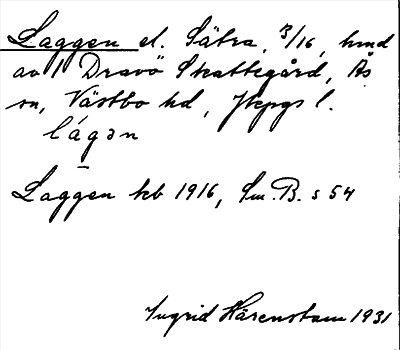 Laggen el. Sätra, 3/16, hmd
av 1 Dravö Skattegård, Ås
sn, Västbo hd, Jkpgs l.
lágən
Laggen kb 1916, Sm. B. s 54
Ingrid Härenstam 1931